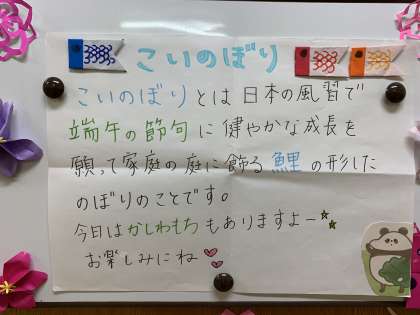 こいのぼり
こいのぼりとは日本の風習で
端午の節句に健やかな成長を
願って家庭の庭に飾る鯉の形した
のぼりのことです。
今日はかしわもちもありますよー
お楽しみにね